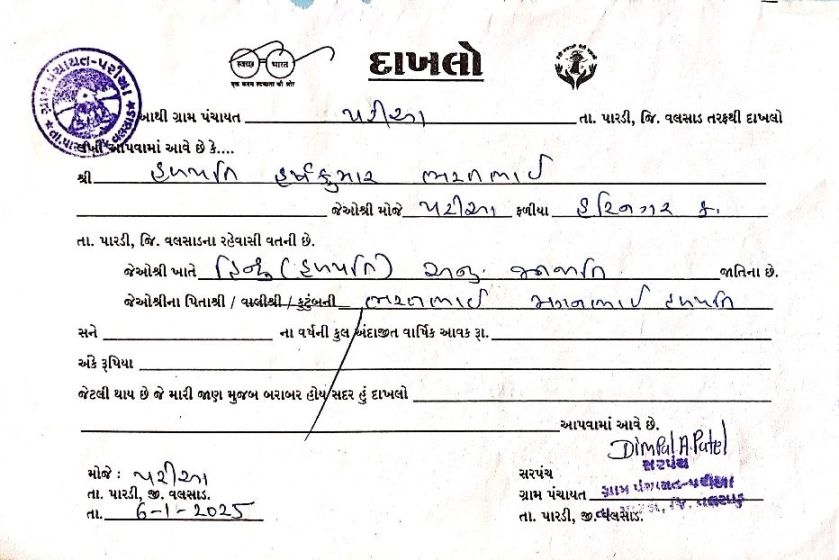 સ્વચ્છ ભારત
એક કદમ સ્વચ્છતા કી ઓર
દાખલો
ગ્રામ પંચાયત-પરીઆ
આથી ગ્રામ પંચાયત પરીઆ તા. પારડી, જિ. વલસાડ તરફથી દાખલો
લખી આપવામાં આવે છે કે....
શ્રી હળપતિ હર્ષકુમાર ભરતભાઈ
જેઓશ્રી મોજે પરીઆ ફળીયા હરિનગર ફ.
તા. પારડી, જિ. વલસાડના રહેવાસી વતની છે.
જેઓશ્રી ખાતે હિન્દુ (હળપતિ) અનુ. જનજાતિ જાતિના છે.
જેઓશ્રીના પિતાશ્રી / વાલીશ્રી / કુટુંબની ભરતભાઈ મગનભાઈ હળપતિ
સને ના વર્ષની કુલ અંદાજીત વાર્ષિક આવક રૂા.
અંકે રૂપિયા
જેટલી થાય છે જે મારી જાણ મુજબ બરાબર હોય સદર હું દાખલો
આપવામાં આવે છે.
Dimpal A. Patel
મોજે : પરીઆ
સરપંચ
સરપંચ
તા. પારડી, જી. વલસાડ.
ગ્રામ પંચાયત ગ્રામ પંચાયત-પરીઆ
તા. 6-1-2025
તા. પારડી, જી. વલસાડ.